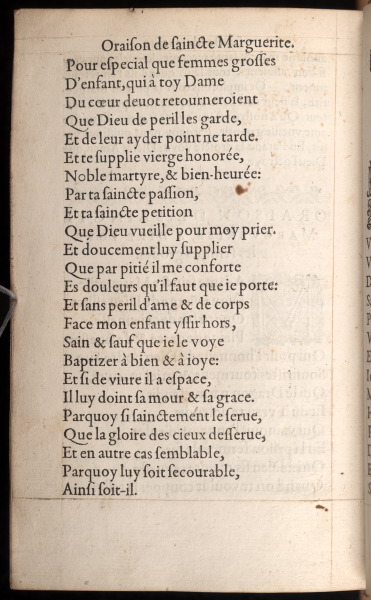 Oraiſon de ſaincte Marguerite.
Pour eſpecial que femmes groſſes
D'enfant, qui à toy Dame
Du cœur deuot retourneroient
Que Dieu de peril les garde,
Et de leur ayder point ne tarde.
Et te ſupplie vierge honorée,
Noble martyre, & bien-heurée:
Par ta ſaincte paſſion,
Et ta ſaincte petition
Que Dieu vueille pour moy prier.
Et doucement luy ſupplier
Que par pitié il me conforte
Es douleurs qu'il faut que ie porte:
Et ſans peril d'ame & de corps
Face mon enfant yſſir hors,
Sain & ſauf que ie le voye
Baptizer à bien & à ioye:
Et ſi de viure il a eſpace,
Il luy doint ſa mour & ſa grace.
Parquoy ſi ſainctement le ſerue,
Que la gloire des cieux deſſerue,
Et en autre cas ſemblable,
Parquoy luy ſoit ſecourable,
Ainſi ſoit-il.